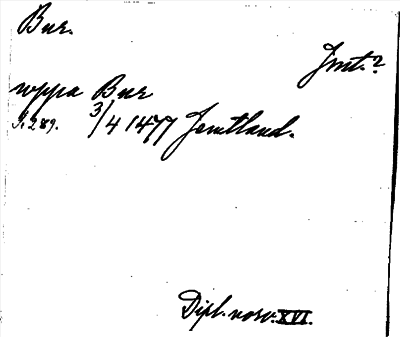 Bur.
Jmt.?
uppa Bur
S. 289. 3/4 1477 Jemtland.
Dipl. norv. XVI.